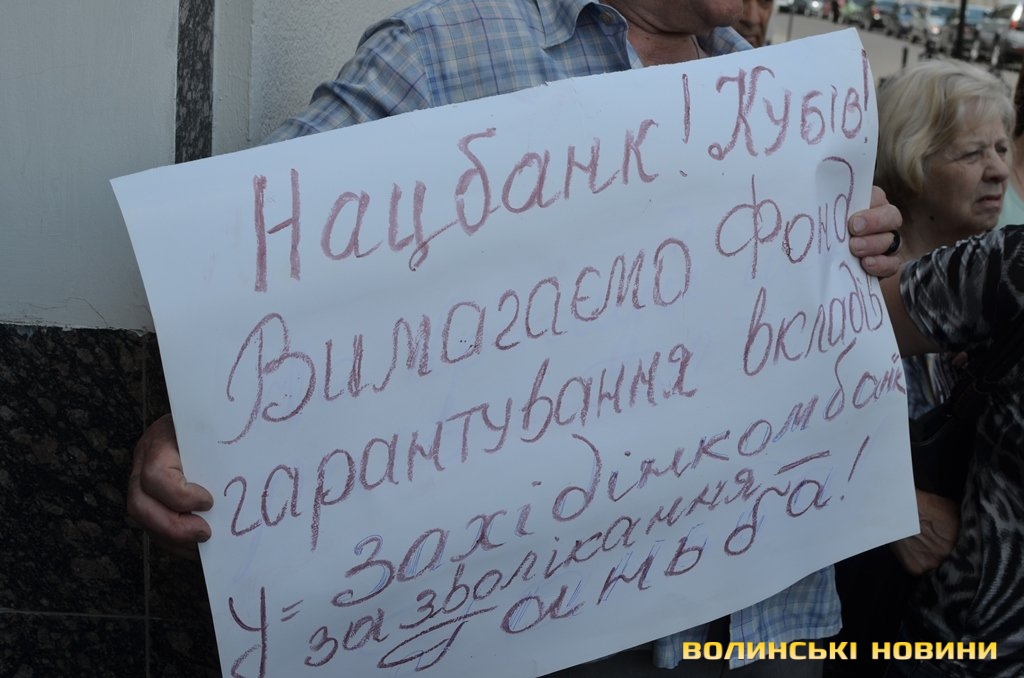 Нацбанк! Кубів!
Вимагаємо Фонд
гарантування вкладів
у Західінкомбанк
за зволікання –
ганьба!
ВОЛИНСЬКІ НОВИНИ